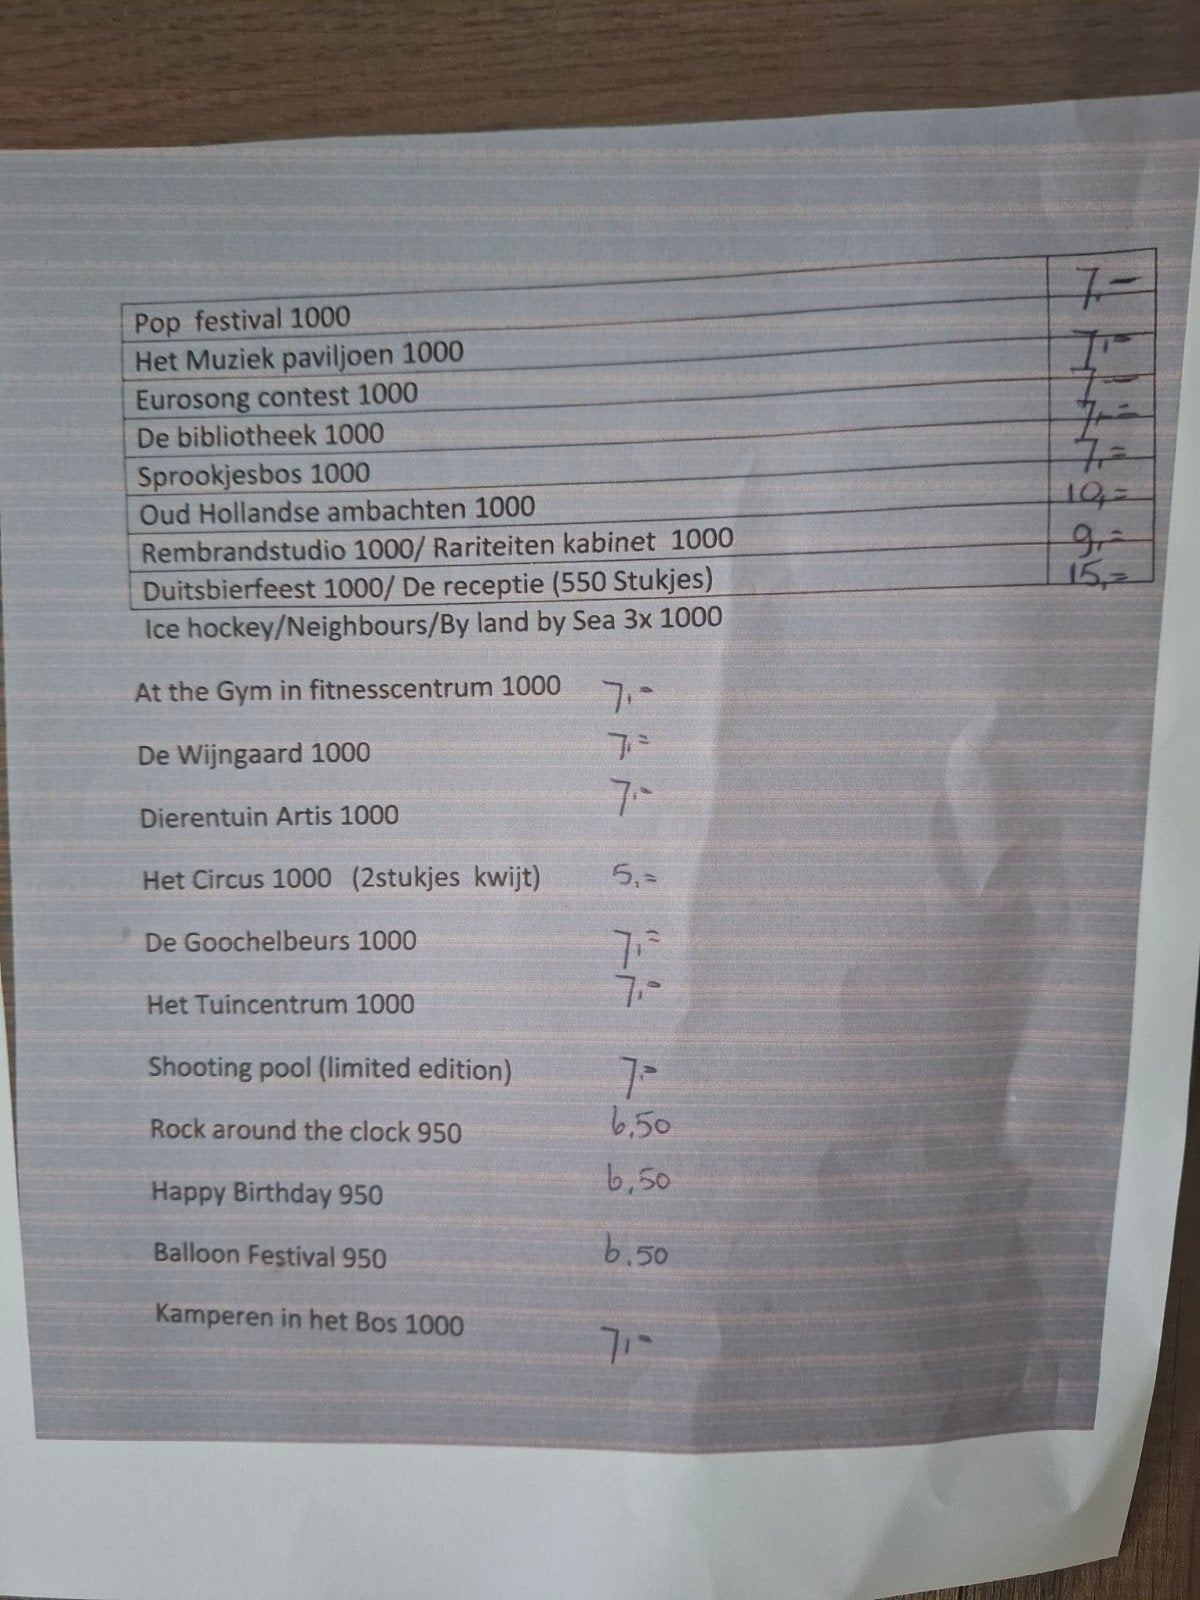 Pop festival 1000 7,-
Het Muziek paviljoen 1000 7,-
Eurosong contest 1000 7-
De bibliotheek 1000 7,=
Sprookjesbos 1000 7,=
Oud Hollandse ambachten 1000 10,=
Rembrandstudio 1000/ Rariteiten kabinet 1000 9,=
Duitsbierfeest 1000/ De receptie (550 Stukjes) 15,=
Ice hockey/Neighbours/By land by Sea 3x 1000
At the Gym in fitnesscentrum 1000 7,-
De Wijngaard 1000 7,=
Dierentuin Artis 1000 7,-
Het Circus 1000 (2stukjes kwijt) 5,=
De Goochelbeurs 1000 7,=
Het Tuincentrum 1000 7,-
Shooting pool (limited edition) 7,-
Rock around the clock 950 6,50
Happy Birthday 950 6,50
Balloon Festival 950 6.50
Kamperen in het Bos 1000 7,-